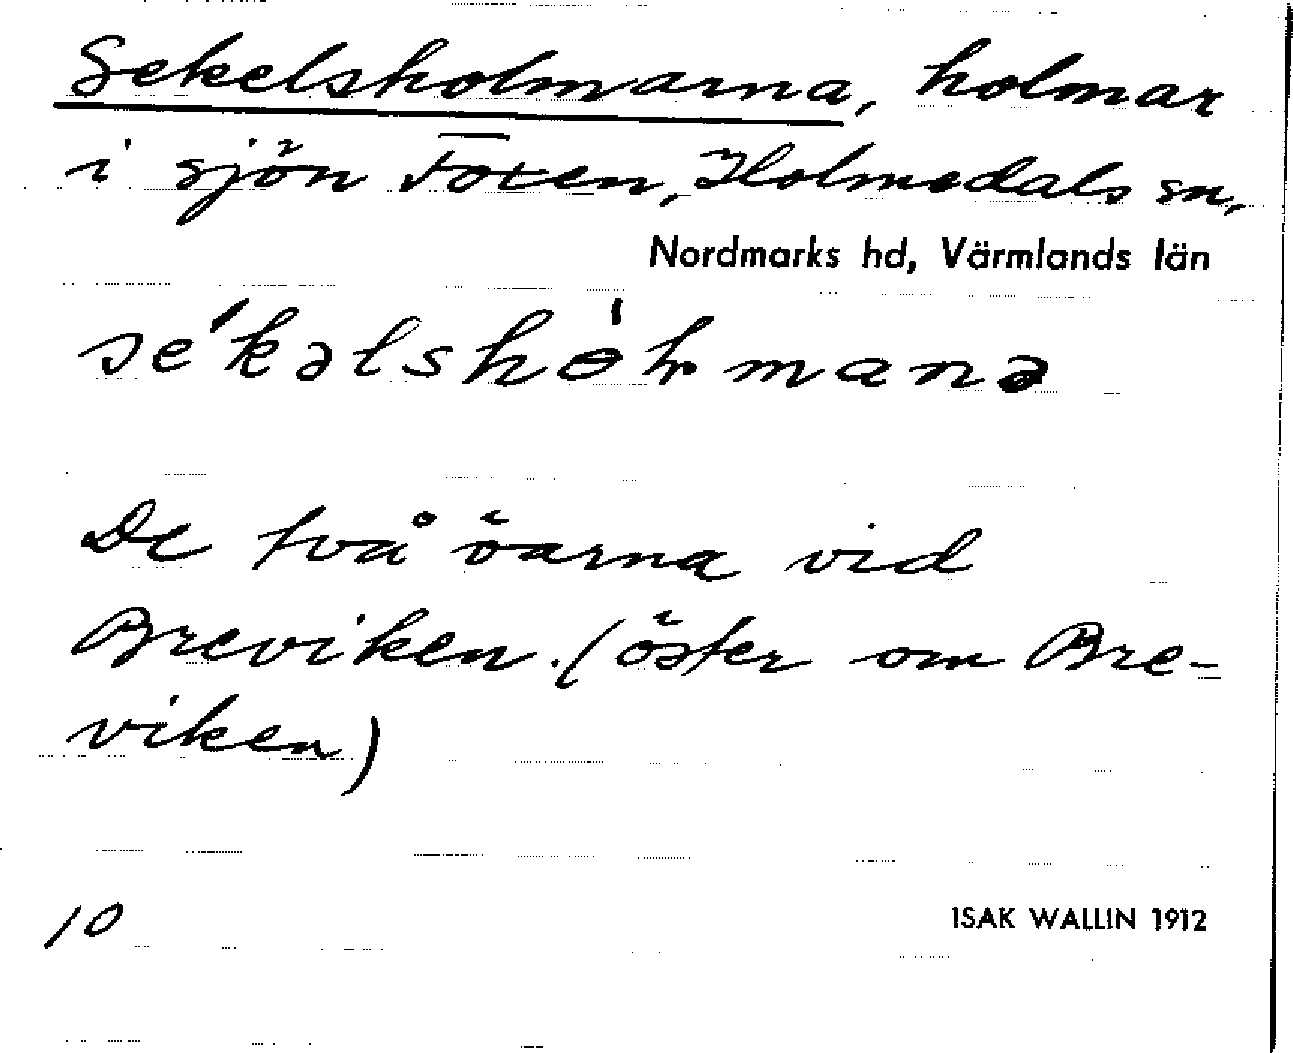 Sekelsholmarna, holmar
i sjön Foxen, Holmedals sn,
Nordmarks hd, Värmlands län
se'kəlshòlmanə
De två öarna vid
Breviken. (öster om Bre-
viken)
10
ISAK WALLIN 1912